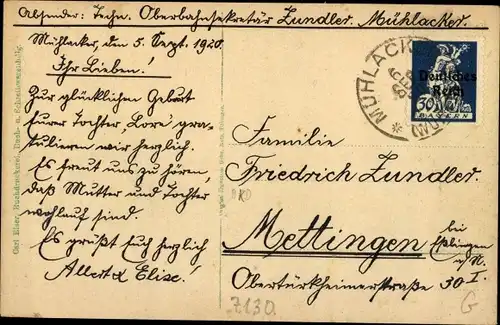 Absender: Techn. Oberbahnsekretär Zundler. Mühlacker.
Mühlacker, den 5. Sept. 1920.
Ihr Lieben!
Zur glücklichen Geburt
Eurer Tochter „Lore" gra-
tulieren wir herzlich.
Es freut uns zu hören,
daß Mutter und Tochter
wohlauf sind.
Es grüßt Euch herzlich
Albert & Elise!
MÜHLACKER
Deutsches
Reich
30
BAYERN
Familie
Friedrich Zundler.
Mettingen bei
Eßlingen
a/N.
Obertürkheimerstraße 30 I.
7130.
G